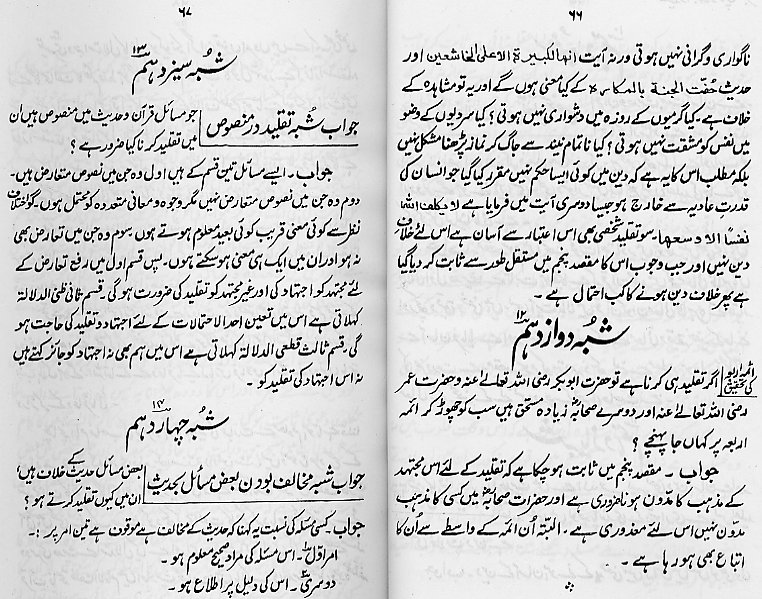 ۶۶
ناگواری و گرانی نہیں ہوتی ورنہ آیت انھا لکبیرۃ الا علی الخاشعین اور
حدیث حُفّت الجنۃ بالمکارہ کے کیا معنی ہوں گے اور یہ تو مشاہدہ کے
خلاف ہے۔ کیا گرمیوں کے روزہ میں دشواری نہیں ہوتی؟ کیا سردیوں کے وضو
میں نفس کو مشقت نہیں ہوتی؟ کیا ناتمام نیند سے جاگ کر نماز پڑھنا مشکل نہیں
بلکہ مطلب اس کا یہ ہے کہ دین میں کوئی ایسا حکم نہیں مقرر کیا گیا جو انسان کی
قدرتِ عادیہ سے خارج ہو جیسا دوسری آیت میں فرمایا ہے لا یکلف اللہ
نفسًا الا وسعھا۔ سو تقلید شخصی بھی اس اعتبار سے آسان ہے اس لئے خلاف
دین نہیں اور جب وجوب اس کا مقصد پنجم میں مستقل طور سے ثابت کر دیا گیا
ہے پھر خلاف دین ہونے کا کب احتمال ہے۔
شُبہ دوازدہم ۱۲
ائمہ اربعہ کی تخصیص اگر تقلید ہی کرنا ہے تو حضرت ابوبکر رضی اللہ تعالےٰ عنہ و حضرت عمر
رضی اللہ تعالےٰ عنہ اور دوسرے صحابہؓ زیادہ مستحق ہیں سب کو چھوڑ کر ائمہ
اربعہ پر کہاں جا پہنچے؟
جواب۔ مقصد پنجم میں ثابت ہو چکا ہے کہ تقلید کے لئے اس مجتہد
کے مذہب کا مدوّن ہونا ضروری ہے اور حضرات صحابہؓ میں کسی کا مذہب
مدوّن نہیں اس لئے معذوری ہے۔ البتّہ اُن ائمہ کے واسطے سے اُن کا
اتباع بھی ہو رہا ہے۔
۶۷
شُبہ سیزدہم ۱۳
جواب شبہ تقلید در منصوص جو مسائل قرآن و حدیث میں منصوص ہیں ان
میں تقلید کرنا کیا ضرور ہے؟
جواب۔ ایسے مسائل تین قسم کے ہیں اول وہ جن میں نصوص متعارض ہیں۔
دوم وہ جن میں نصوص متعارض نہیں مگر وجوہ و معانی متعددہ کو محتمل ہوں۔ گو اختلاف
نظر سے کوئی معنی قریب کوئی بعید معلوم ہوتے ہوں۔ سوم وہ جن میں تعارض بھی
نہ ہو اور ان میں ایک ہی معنی ہو سکتے ہوں۔ پس قسم اول میں رفع تعارض کے
لئے مجتہد کو اجتہاد کی اور غیر مجتہد کو تقلید کی ضرورت ہوگی۔ قسم ثانی ظنی الدلالۃ
کہلاتی ہے اس میں تعیین احد الاحتمالات کے لئے اجتہاد و تقلید کی حاجت ہو
گی۔ قسم ثالث قطعی الدلالۃ کہلاتی ہے اس میں ہم بھی نہ اجتہاد کو جائز کہتے ہیں
نہ اس اجتہاد کی تقلید کو۔
شُبہ چہاردہم ۱۴
جواب شبہ مخالف بودن بعض مسائل بحدیث بعض مسائل حدیث کے خلاف ہیں،
ان میں کیوں تقلید کرتے ہو؟
جواب۔ کسی مسئلہ کی نسبت یہ کہنا کہ حدیث کے مخالف ہے موقوف ہے تین امر پر:۔
امر اوّل۔ اس مسئلہ کی مراد صحیح معلوم ہو۔
دوسری۔ اس کی دلیل پر اطلاع ہو۔